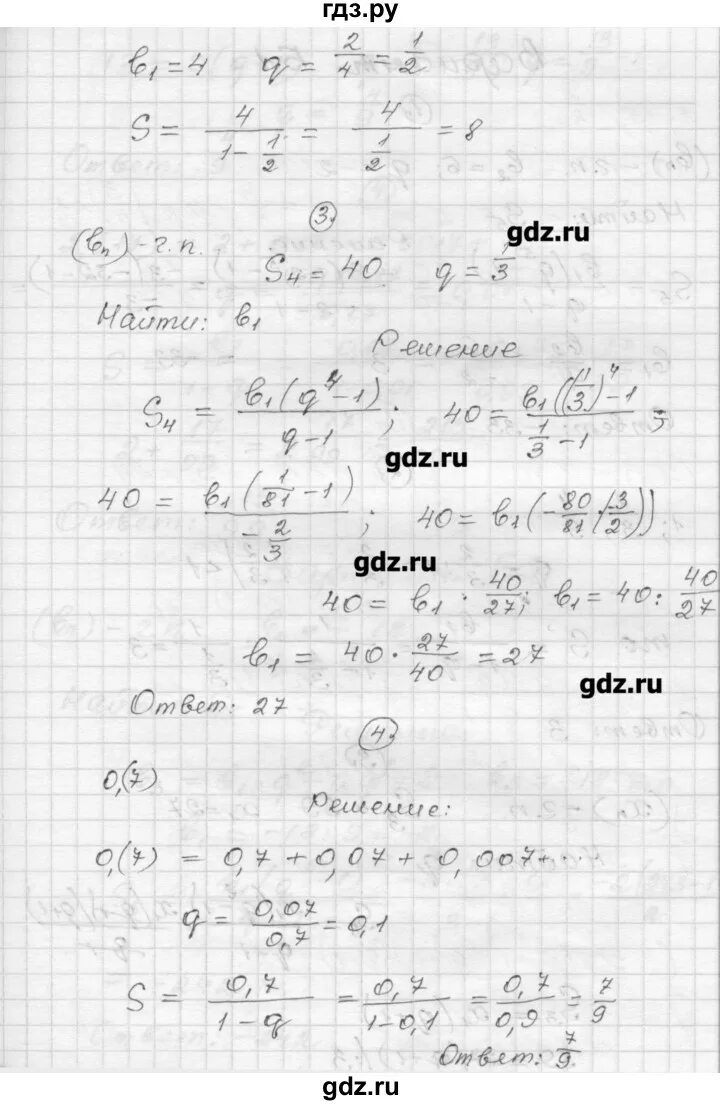 гдз.ру
b₁ = 4   q = 2/4 = 1/2
S = 4/(1 - 1/2) = 4/(1/2) = 8
3.
gdz.ru
(bₙ) - г.п.   S₄ = 40   q = 1/3
Найти: b₁
Решение
S₄ = b₁(q⁴-1)/(q-1);   40 = b₁((1/3)⁴-1/(1/3 - 1) =
gdz.ru
40 = b₁(1/81 - 1)/(-2/3);   40 = b₁(-80/81·(3/2))
gdz.ru
40 = b₁ · 40/27; b₁ = 40 : 40/27
b₁ = 40 · 27/40 = 27
gdz.ru
Ответ: 27
4.
0,(7)
Решение:
0,(7) = 0,7 + 0,07 + 0,007 + ...
q = 0,07/0,7 = 0,1
S = 0,7/(1 - q) = 0,7/(1-0,1) = 0,7/0,9 = 7/9
Ответ: 7/9.
gdz.ru